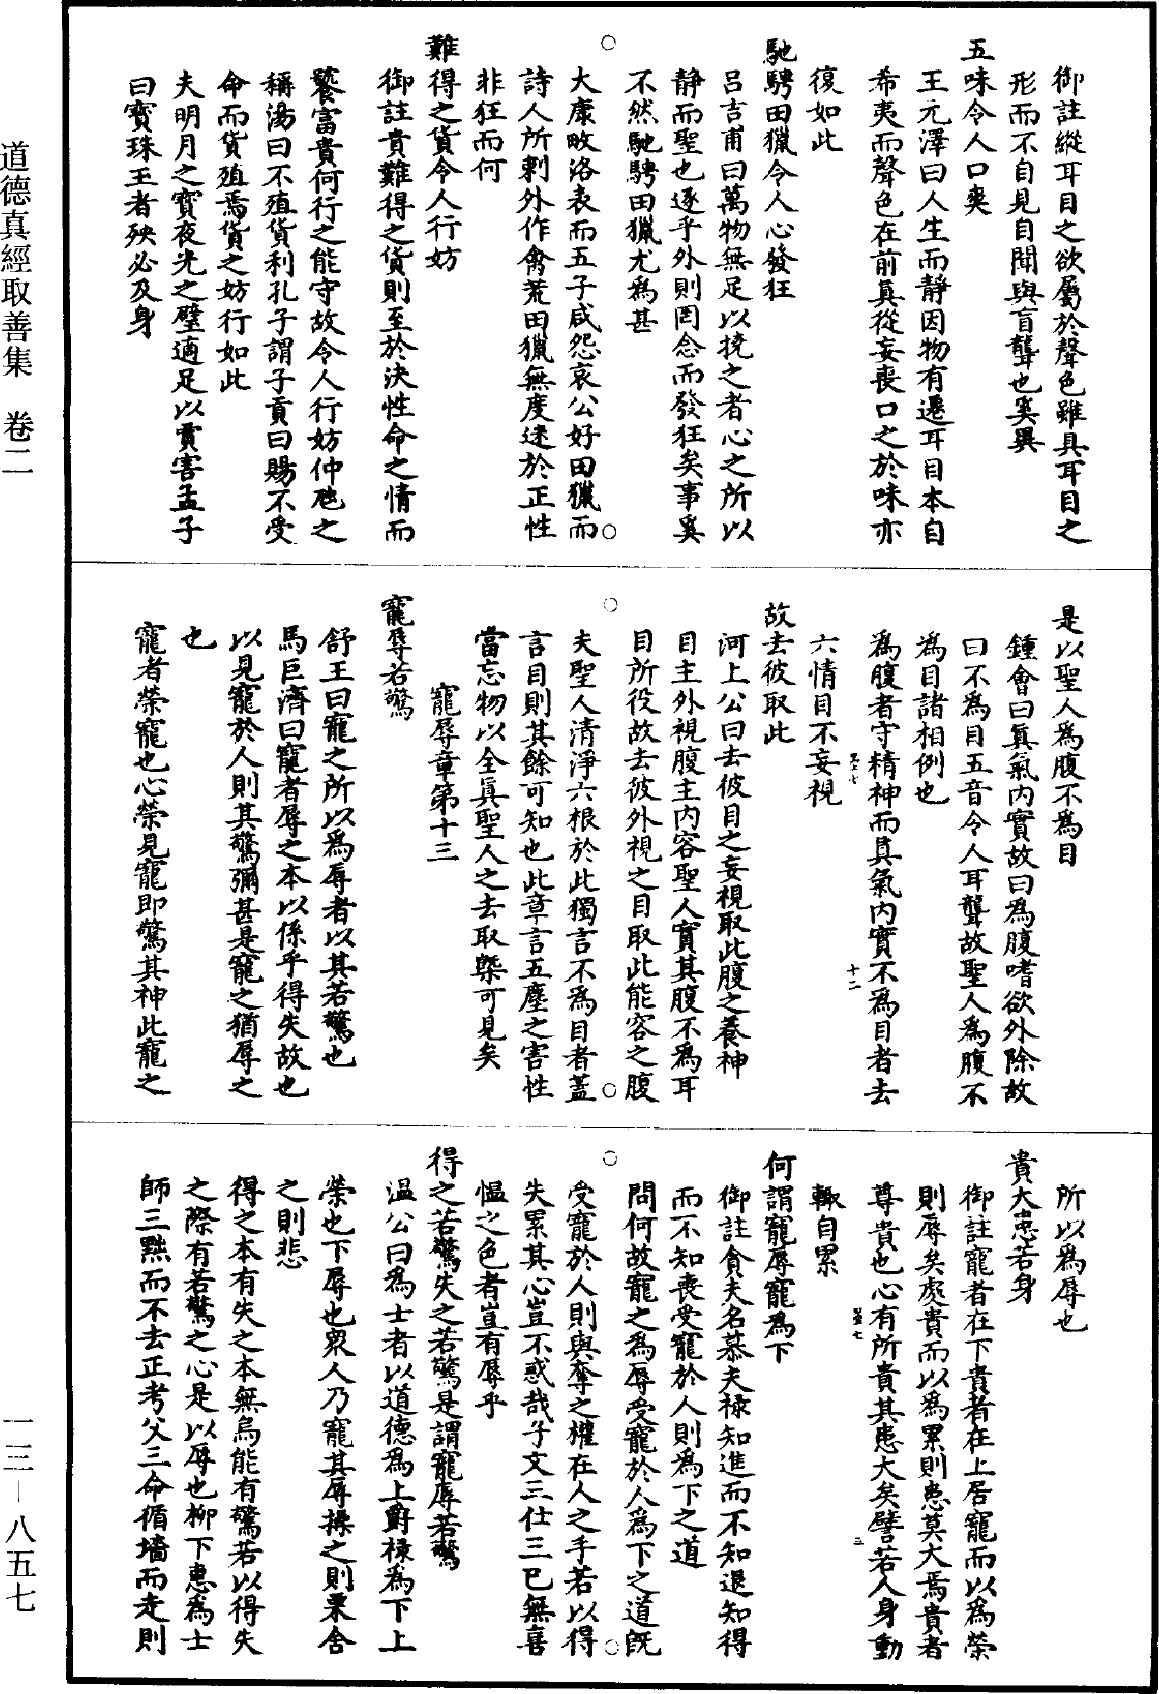 御註縱耳目之欲屬於聲色雖具耳目之
形而不自見自聞與盲聾也奚異
五味令人口爽
王元澤曰人生而靜因物有遷耳目本自
希夷而聲色在前真從妄喪口之於味亦
復如此
馳騁田獵令人心發狂
呂吉甫曰萬物無足以撓之者心之所以
靜而聖也逐乎外則罔念而發狂矣事奚
不然馳騁田獵尤為甚
大康畋洛表而五子咸怨哀公好田獵而
詩人所刺外作禽荒田獵無度迷於正性
非狂而何
難得之貨令人行妨
御註貴難得之貨則至於決性命之情而
饕富貴何行之能守故令人行妨仲虺之
稱湯曰不殖貨利孔子謂子貢曰賜不受
命而貨殖焉貨之妨行如此
夫明月之寶夜光之璧適足以賈害孟子
曰寶珠玉者殃必及身
是以聖人為腹不為目
鍾會曰真氣內實故曰為腹嗜欲外除故
曰不為目五音令人耳聾故聖人為腹不
為目諸相例也
為腹者守精神而真氣內實不為目者去
六情目不妄視
故去彼取此
河上公曰去彼目之妄視取此腹之養神
目主外視腹主內容聖人實其腹不為耳
目所役故去彼外視之目取此能容之腹
夫聖人清淨六根於此獨言不為目者蓋
言目則其餘可知也此章言五塵之害性
當忘物以全真聖人之去取槩可見矣
寵辱章第十三
寵辱若驚
舒王曰寵之所以為辱者以其若驚也
馬巨濟曰寵者辱之本以係乎得失故也
以見寵於人則其驚彌甚是寵之猶辱之
也
寵者榮寵也心榮見寵即驚其神此寵之
所以為辱也
貴大患若身
御註寵者在下貴者在上居寵而以為榮
則辱矣處貴而以為累則患莫大焉貴者
尊貴也心有所貴其患大矣譬若人身動
輙自累
何謂寵辱寵為下
御註貪夫名慕夫祿知進而不知退知得
而不知喪受寵於人則為下之道
問何故寵之為辱受寵於人為下之道既
受寵於人則與奪之權在人之手若以得
失累其心豈不惑哉子文三仕三已無喜
慍之色者豈有辱乎
得之若驚失之若驚是謂寵辱若驚
溫公曰為士者以道德為上爵祿為下上
榮也下辱也眾人乃寵其辱操之則栗舍
之則悲
得之本有失之本無烏能有驚若以得失
之際有若驚之心是以辱也柳下惠為士
師三黜而不去正考父三命循墻而走則
道德真經取善集　卷二
一三—八五七